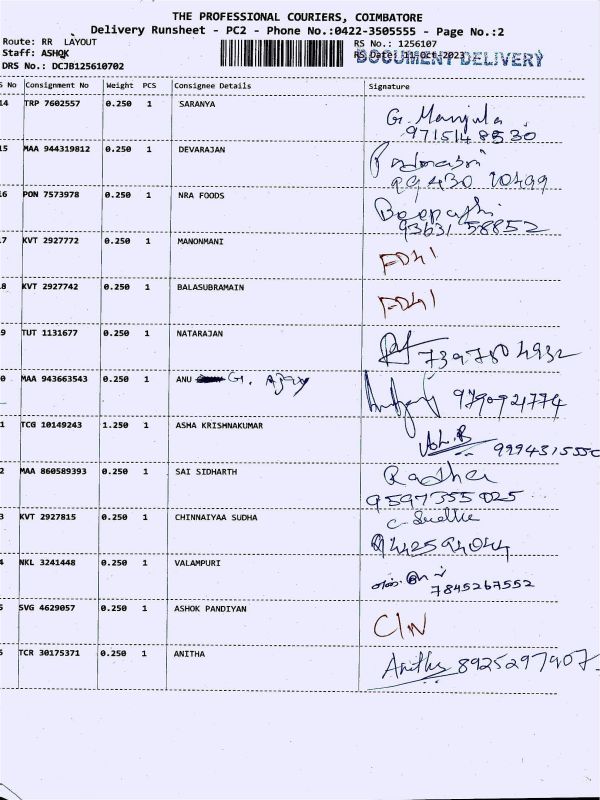 THE PROFESSIONAL COURIERS, COIMBATORE
Delivery Runsheet - PC2 - Phone No.:0422-3505555 - Page No.:2
Route: RR LAYOUT
RS No.: 1256107
Staff: ASHOK
RS Date: 11-Oct-2023
DOCUMENT DELIVERY
DRS No.: DCJB125610702
S No Consignment No Weight PCS Consignee Details Signature
14 TRP 7602557 0.250 1 SARANYA G. Manjula
9715148530
15 MAA 944319812 0.250 1 DEVARAJAN
99430 70499
16 PON 7573978 0.250 1 NRA FOODS
93631 58852
17 KVT 2927772 0.250 1 MANONMANI
18 KVT 2927742 0.250 1 BALASUBRAMAIN
19 TUT 1131677 0.250 1 NATARAJAN 7397804932
0 MAA 943663543 0.250 1 ANU G. Ajay 9790921774
1 TCG 10149243 1.250 1 ASHA KRISHNAKUMAR Ash.B 9994315550
2 MAA 860589393 0.250 1 SAI SIDHARTH Radha
9597355025
3 KVT 2927815 0.250 1 CHINNAIYAA SUDHA C. Sudha
9442594044
4 NKL 3241448 0.250 1 VALAMPURI
7845267552
5 SVG 4629057 0.250 1 ASHOK PANDIYAN C/N
5 TCR 30175371 0.250 1 ANITHA Anitha 8925297907